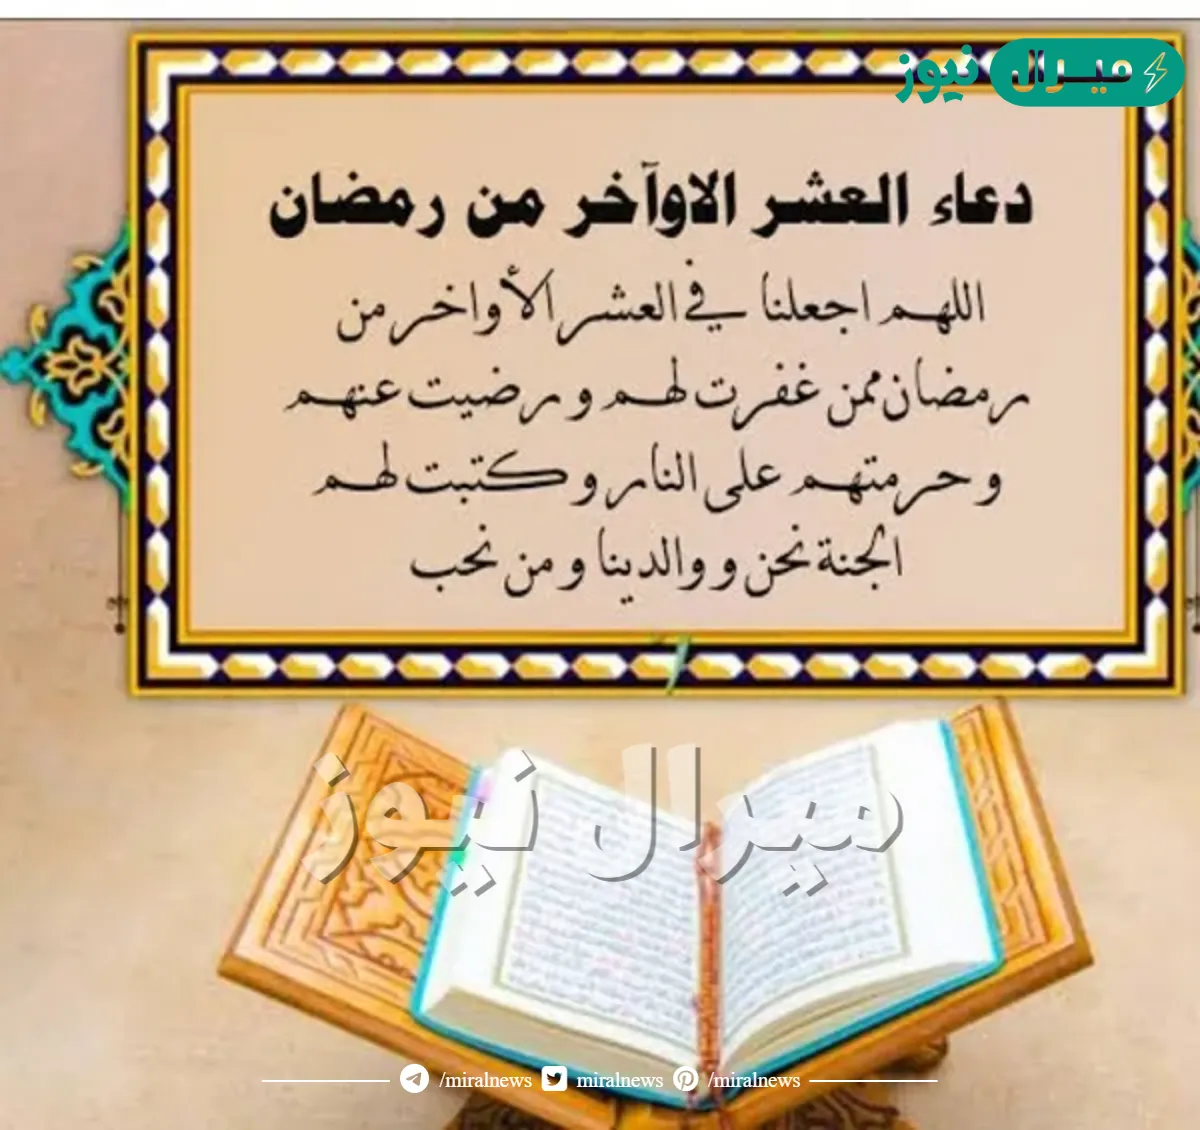 ميرال نيوز
دعاء العشر الاوآخر من رمضان
اللهم اجعلنا في العشر الأواخر من
رمضان ممن غفرت لهم و رضيت عنهم
و حرمتهم على النار و كتبت لهم
الجنة نحن و والدينا و من نحب
ميرال نيوز
/miralnews miralnews /miralnews